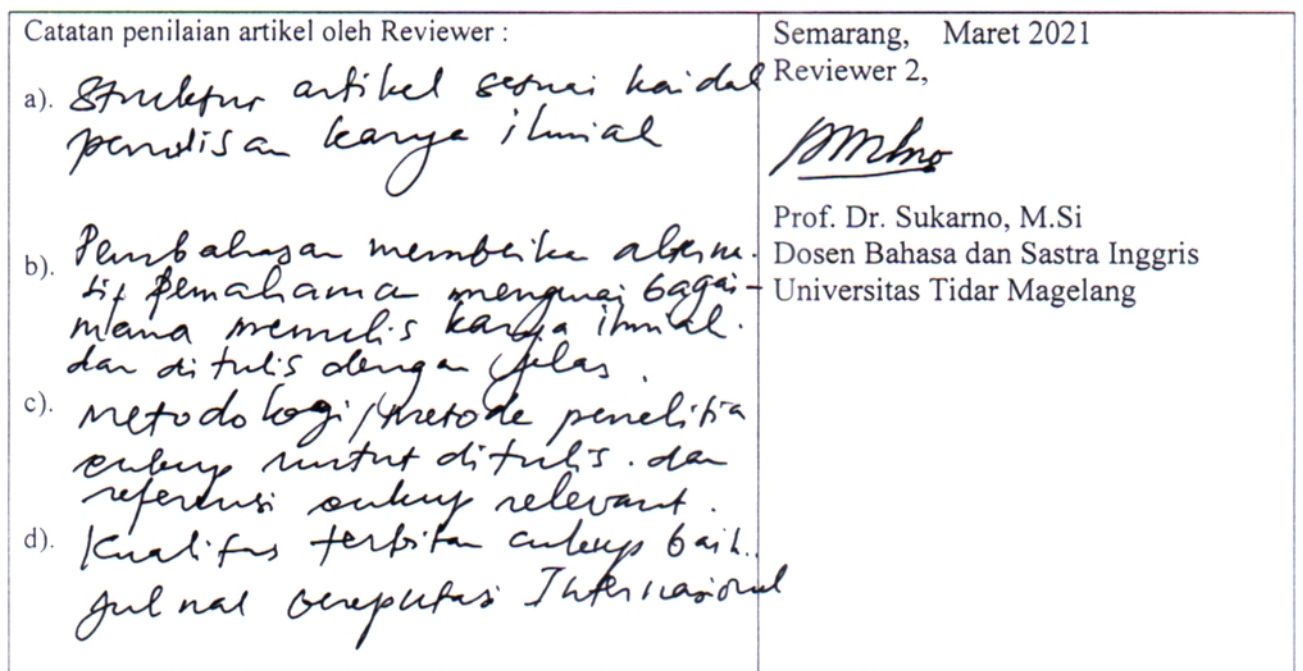 Catatan penilaian artikel oleh Reviewer :
a). Struktur artikel sesuai kaidah
penulisan karya ilmiah
b). Pembahasan memberika alterna-
tif pemahama mengenai bagai-
mana menulis karya ilmiah.
dan ditulis dengan jelas.
c). Metodologi/metode penelitia
cukup runtut ditulis. dan
referensi cukup relevant.
d). Kualitas terbitan cukup baik.
Jurnal bereputasi Internasional
Semarang, Maret 2021
Reviewer 2,
Prof. Dr. Sukarno, M.Si
Dosen Bahasa dan Sastra Inggris
Universitas Tidar Magelang